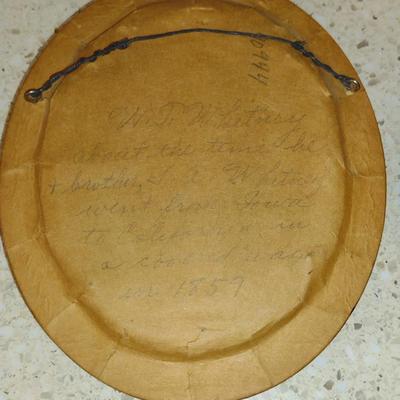 W. T. Whitney
about the time he
+ brother, Whitney
went from Iowa
to in
a covered wagon
in 1859